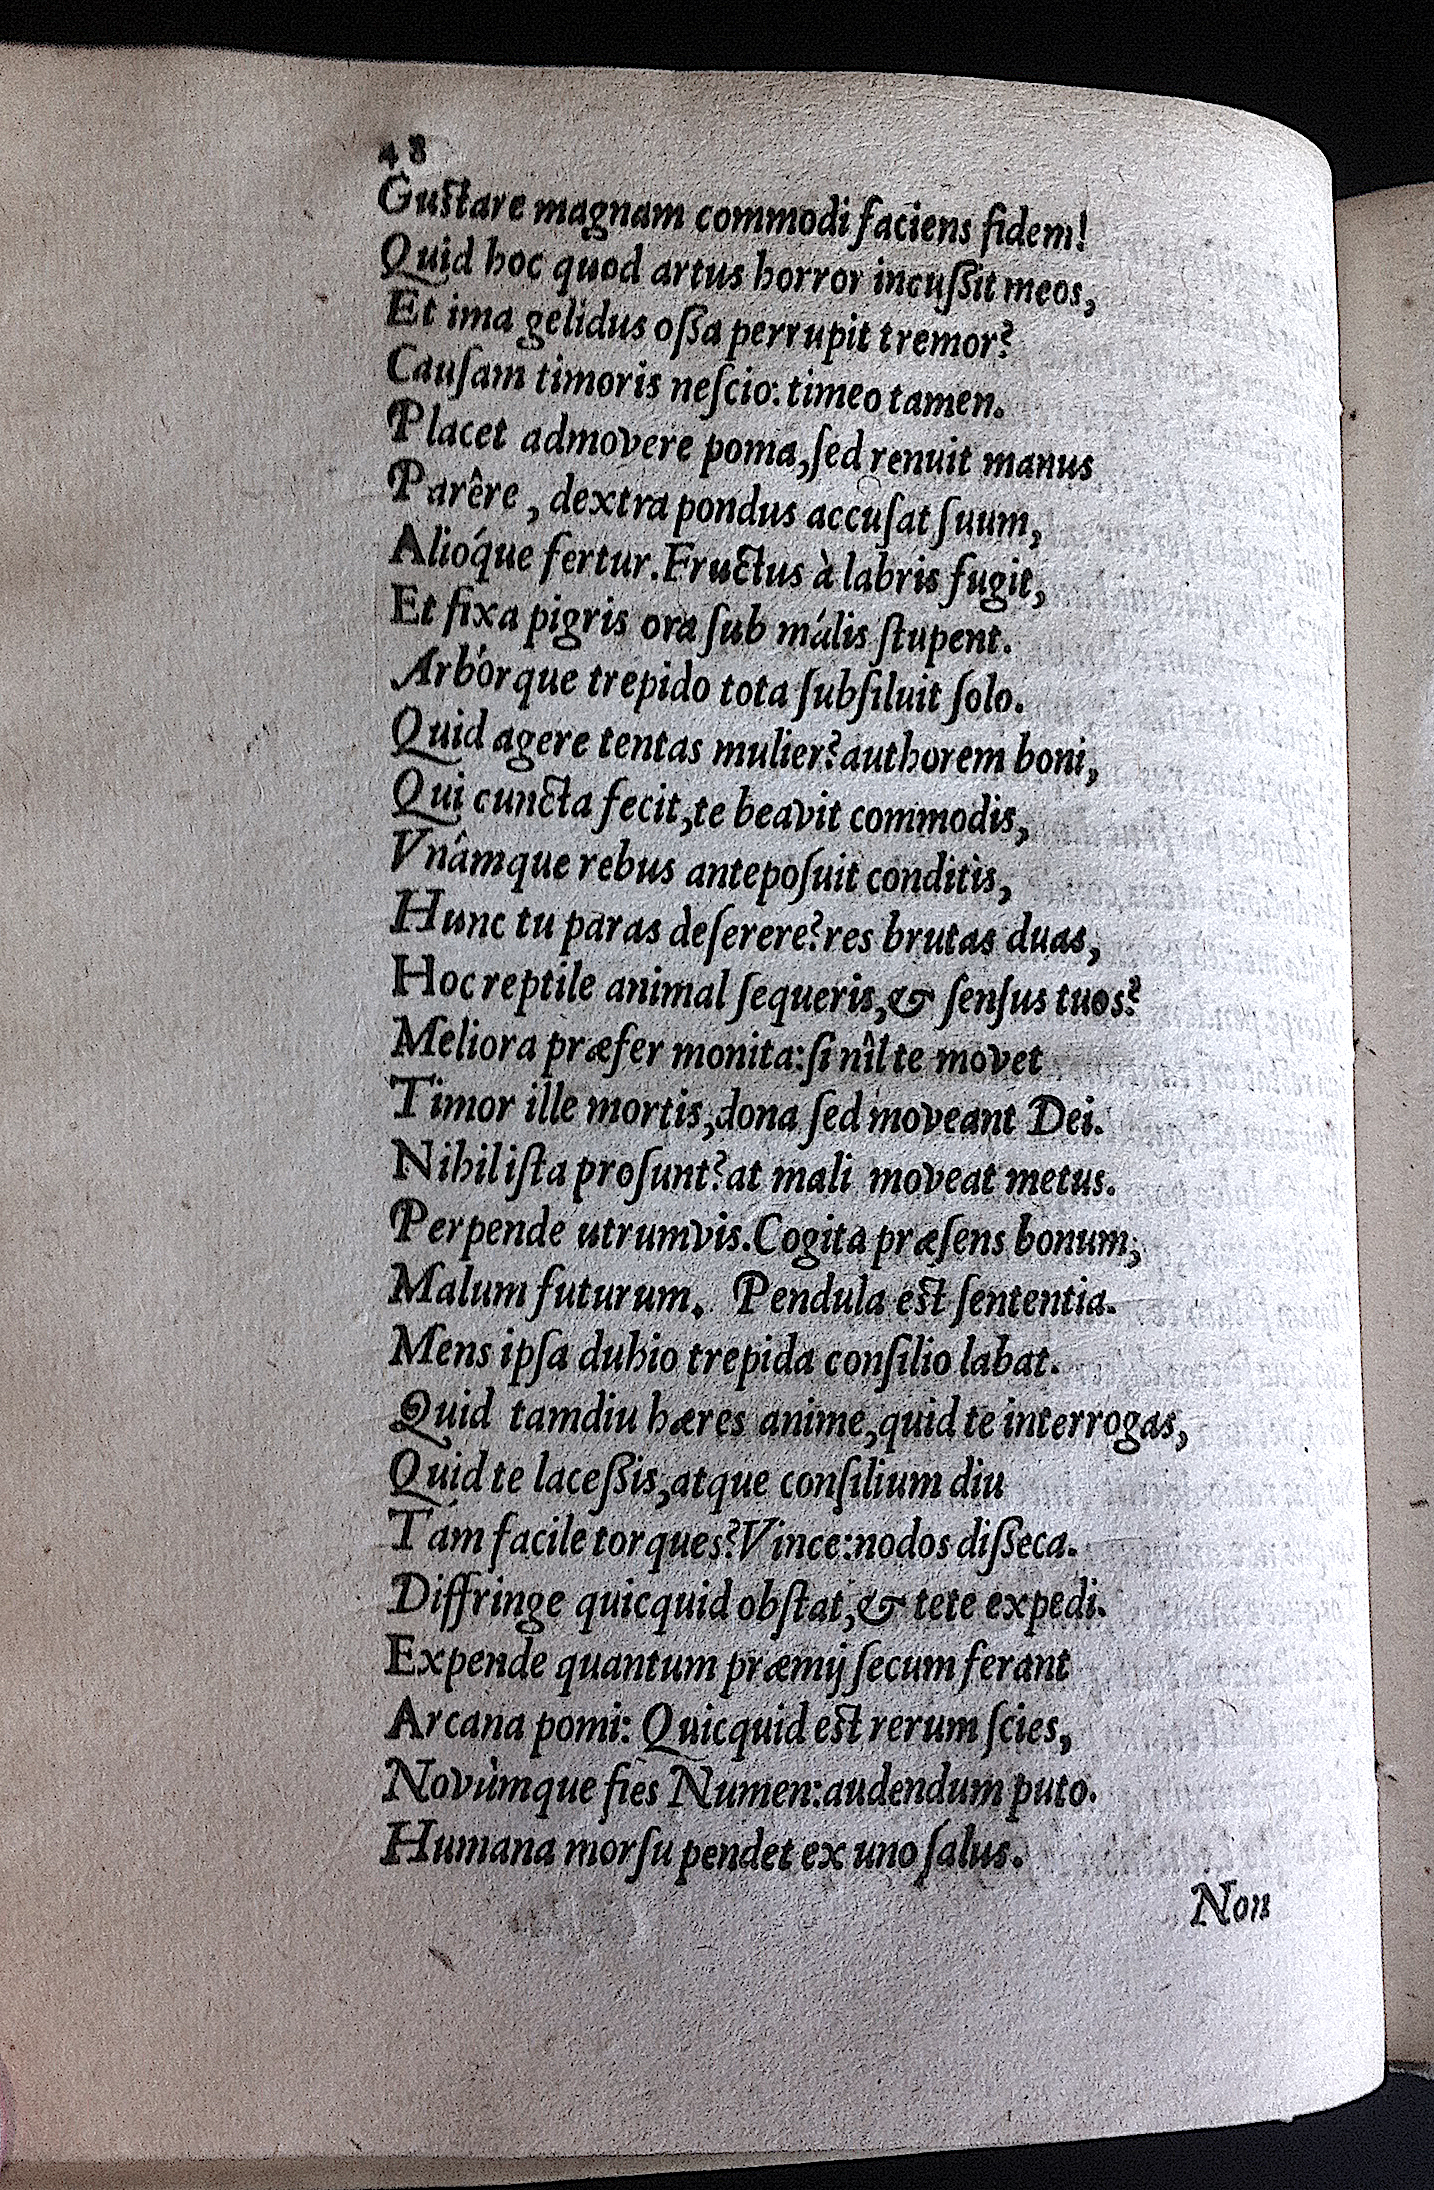 48
Gustare magnam commodi faciens fidem!
Quid hoc quod artus horror incuſſit meos,
Et ima gelidus oſſa perrupit tremor?
Cauſam timoris neſcio: timeo tamen.
Placet admovere poma, ſed renuit manus
Parêre, dextra pondus accuſat ſuum,
Alióque fertur. Fructus à labris fugit,
Et fixa pigris ora ſub mális ſtupent.
Arbórque trepido tota ſubſiluit ſolo.
Quid agere tentas mulier? authorem boni,
Qui cuncta fecit, te beavit commodis,
Vnâmque rebus antepoſuit conditis,
Hunc tu paras deſerere? res brutas duas,
Hoc reptile animal ſequeris, & ſenſus tuos?
Meliora præfer monita: ſi nîl te movet
Timor ille mortis, dona ſed moveant Dei.
Nihil iſta proſunt? at mali moveat metus.
Perpende utrumvis. Cogita præſens bonum;
Malum futurum. Pendula est ſententia.
Mens ipſa dubio trepida conſilio labat.
Quid tamdiu hæres anime, quid te interrogas,
Quid te laceſſis, atque conſilium diu
Tám facile torques? Vince: nodos diſſeca.
Diffringe quicquid obſtat, & tete expedi.
Expende quantum præmij ſecum ferant
Arcana pomi: Quicquid est rerum ſcies,
Novùmque fies Numen: audendum puto.
Humana morſu pendet ex uno ſalus.
Non